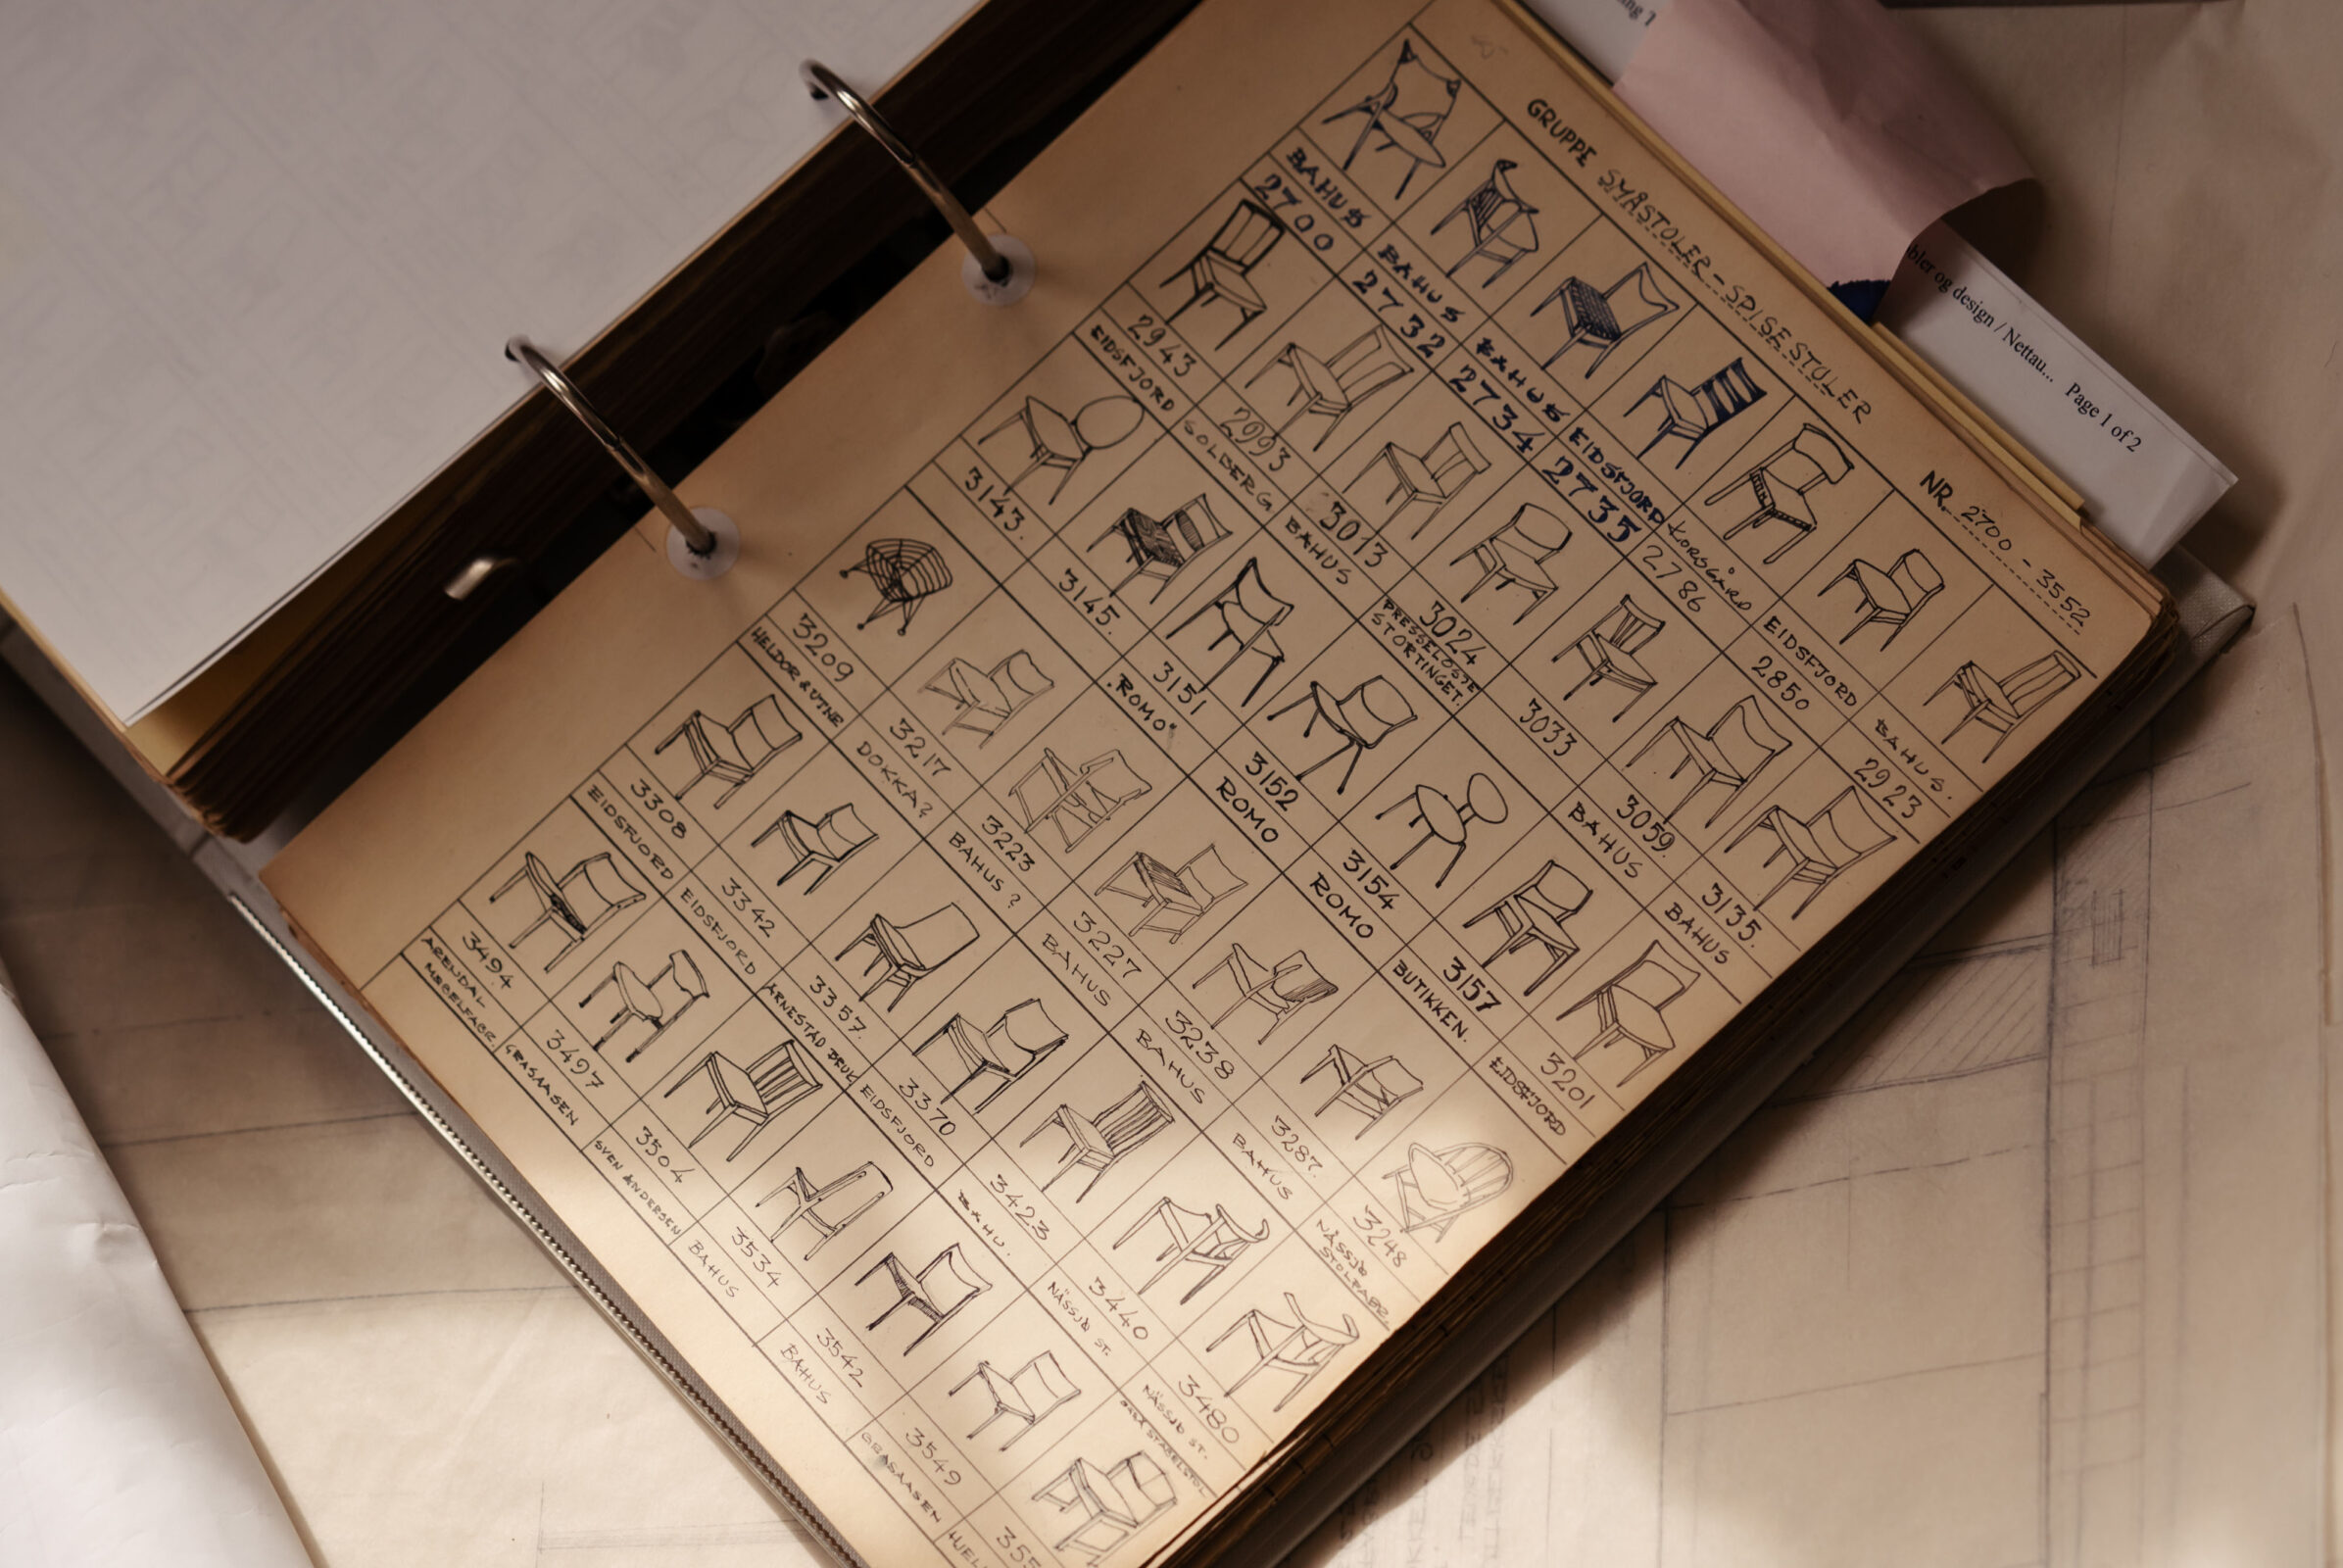 GRUPPE SMÅSTOLER-SPISESTOLER NR. 2700 - 3552
BAHUS BAHUS BAHUS EIDSFJORD KORSGÅRD EIDSFJORD BAHUS.
2700 2732 2734 2735 2786 2850 2923
2943 2993 3013 3024 3033 3059. 3135.
EIDSFJORD SOLBERG BAHUS PRESSELOSJE STORTINGET. BAHUS BAHUS
3143. 3145. 3151 3152 3154 3157 3201
"ROMO" ROMO ROMO BUTIKKEN. EIDSFJORD
3209 3217 3223 3227 3238 3287. 3248
HELDOR & UTNE DOKKA? BAHUS? BAHUS BAHUS BAHUS NÄSSJÖ STOLFABR.
3308 3342 3357. 3370 3423 3440 3480
EIDSFJORD EIDSFJORD ARNESTAD BRUK EIDSFJORD BAHU. NÄSSJÖ ST. NÄSSJÖ ST.
3494 3497 3504 3534 3542 3549 355
ARENDAL MØBELFABR. GRASAASEN SVEN ANDERSEN BAHUS BAHUS GRASAASEN
bler og design / Nettau... Page 1 of 2